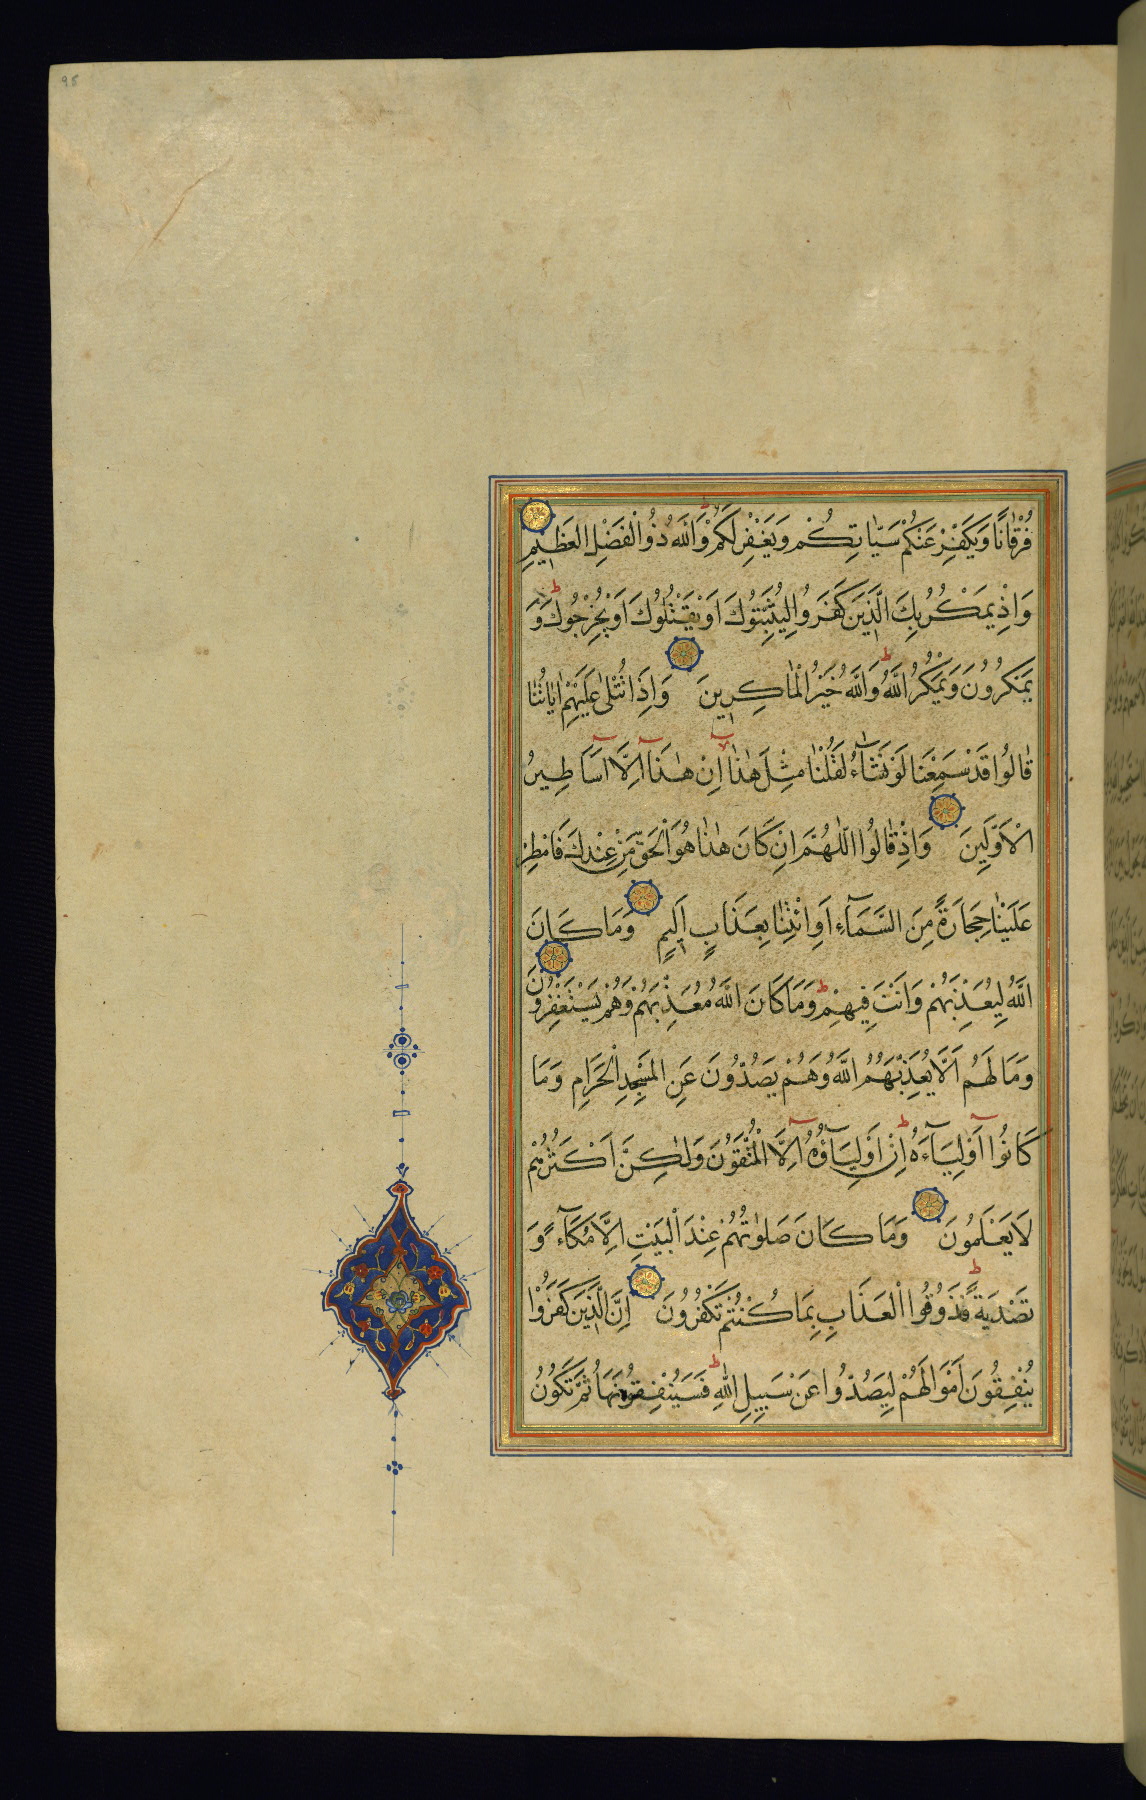 95
فُرْقَانًا وَيُكَفِّرْ عَنْكُمْ سَيِّاٰتِكُمْ وَيَغْفِرْ لَكُمْ ط وَاللّٰهُ ذُو الْفَضْلِ الْعَظٖيمِ
وَاِذْ يَمْكُرُ بِكَ الَّذٖينَ كَفَرُوا لِيُثْبِتُوكَ اَوْ يَقْتُلُوكَ اَوْ يُخْرِجُوكَ ط وَ
يَمْكُرُونَ وَيَمْكُرُ اللّٰهُ ط وَاللّٰهُ خَيْرُ الْمَاكِرٖينَ وَاِذَا تُتْلٰى عَلَيْهِمْ اٰيَاتُنَا
قَالُوا قَدْ سَمِعْنَا لَوْ نَشَآءُ لَقُلْنَا مِثْلَ هٰذَا اِنْ هٰذَآ اِلَّآ اَسَاطٖيرُ
الْاَوَّلٖينَ وَاِذْ قَالُوا اللّٰهُمَّ اِنْ كَانَ هٰذَا هُوَ الْحَقَّ مِنْ عِنْدِكَ فَاَمْطِرْ
عَلَيْنَا حِجَارَةً مِنَ السَّمَآءِ اَوِ ائْتِنَا بِعَذَابٍ اَلٖيمٍ وَمَا كَانَ
اللّٰهُ لِيُعَذِّبَهُمْ وَاَنْتَ فٖيهِمْ ط وَمَا كَانَ اللّٰهُ مُعَذِّبَهُمْ وَهُمْ يَسْتَغْفِرُونَ
وَمَا لَهُمْ اَلَّا يُعَذِّبَهُمُ اللّٰهُ وَهُمْ يَصُدُّونَ عَنِ الْمَسْجِدِ الْحَرَامِ وَمَا
كَانُوا اَوْلِيَآءَهُ ط اِنْ اَوْلِيَآؤُهُٓ اِلَّا الْمُتَّقُونَ وَلٰكِنَّ اَكْثَرَهُمْ
لَا يَعْلَمُونَ وَمَا كَانَ صَلٰوتُهُمْ عِنْدَ الْبَيْتِ اِلَّا مُكَآءً وَ
تَصْدِيَةً ط فَذُوقُوا الْعَذَابَ بِمَا كُنْتُمْ تَكْفُرُونَ اِنَّ الَّذٖينَ كَفَرُوا
يُنْفِقُونَ اَمْوَالَهُمْ لِيَصُدُّوا عَنْ سَبٖيلِ اللّٰهِ ط فَسَيُنْفِقُونَهَا ثُمَّ تَكُونُ